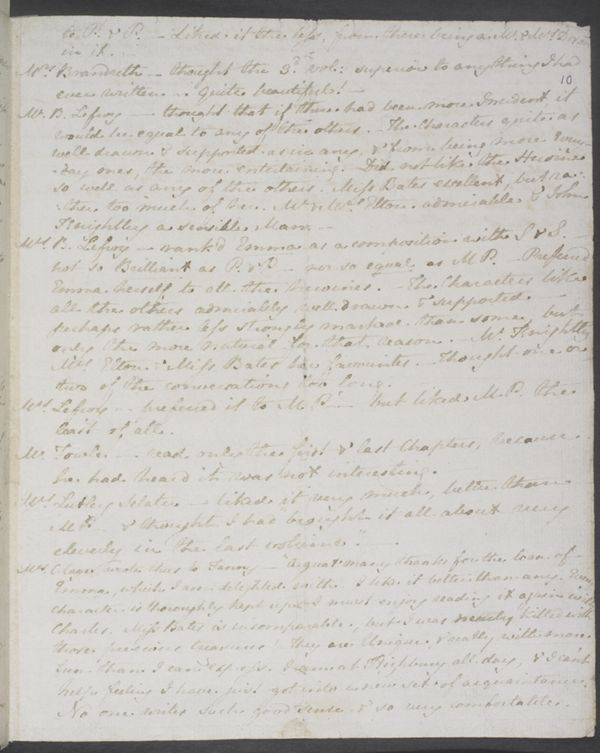 to P. & P. - liked it the less, from there being a Mr. & Mrs. Dixon
in it.
10
Mrs. Brandreth - thought the 3d. vol: superior to anything I had
ever written - quite beautiful! -
Mr. B. Lefroy - thought that if there had been more Incident, it
would be equal to any of the others. - The Characters quite as
well drawn & supported as in any, & from being more every-
-day ones, the more entertaining. - Did not like the Heroine
so well as any of the others. Miss Bates excellent, but ra-
-ther too much of her. Mr. & Mrs. Elton admirable & John
Knightley a sensible Man. -
Mrs. B. Lefroy - rank'd Emma as a composition with S & S. -
not so Brilliant as P. & P - nor so equal as M P. - Preferred
Emma herself to all the heroines. - The Characters like
all the others admirably well drawn & supported -
perhaps rather less strongly marked than some, but
only the more natural for that reason. - Mr. Knightley
Mrs. Elton & Miss Bates her favourites. - Thought one or
two of the conversations too long. -
Mrs. Lefroy - preferred it to M P - but liked M. P. the
least of all.
Mr. Fowle - read only the first & last Chapters, because
he had heard it was not interesting. -
Mrs. Lutley Sclater - liked it very much, better than
M P - & thought I had "brought it all about very
cleverly in the last volume." -
Mrs. C. Cage wrote thus to Fanny - "A great many thanks for the loan of
Emma, which I am delighted with. I like it better than any. Every
character is thoroughly kept up. I must enjoy reading it again with
Charles. Miss Bates is incomparable, but I was nearly killed with
those precious treasures! They are Unique, & really with more
fun than I can express. I am at Highbury all day, & I can't
help feeling I have just got into a new set of acquaintance.
No one writes such good sense & so very comfortable.